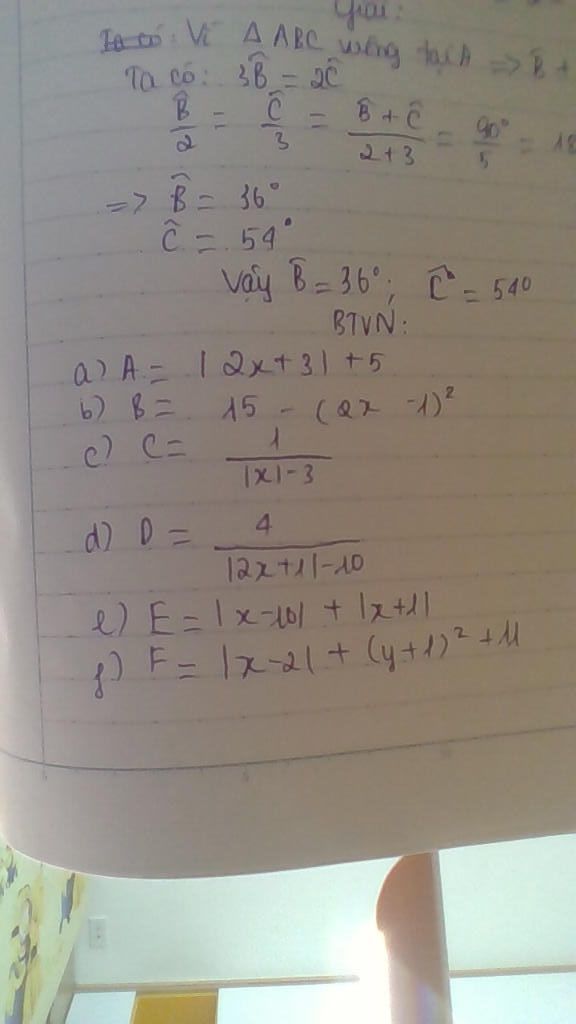 Giải:
Vì Δ ABC vuông tại A => B̂ +
Ta có: 3B̂ = 2Ĉ
B̂/2 = Ĉ/3 = (B̂ + Ĉ)/(2+3) = 90°/5 = 18
=> B̂ = 36°
Ĉ = 54°
Vậy B̂ = 36°; Ĉ = 54°
BTVN:
a) A = |2x+3| + 5
b) B = 15 - (2x - 1)²
c) C = 1/(|x| - 3)
d) D = 4/(|2x+1| - 10)
e) E = |x-10| + |x+1|
f) F = |x-2| + (y+1)² + 11